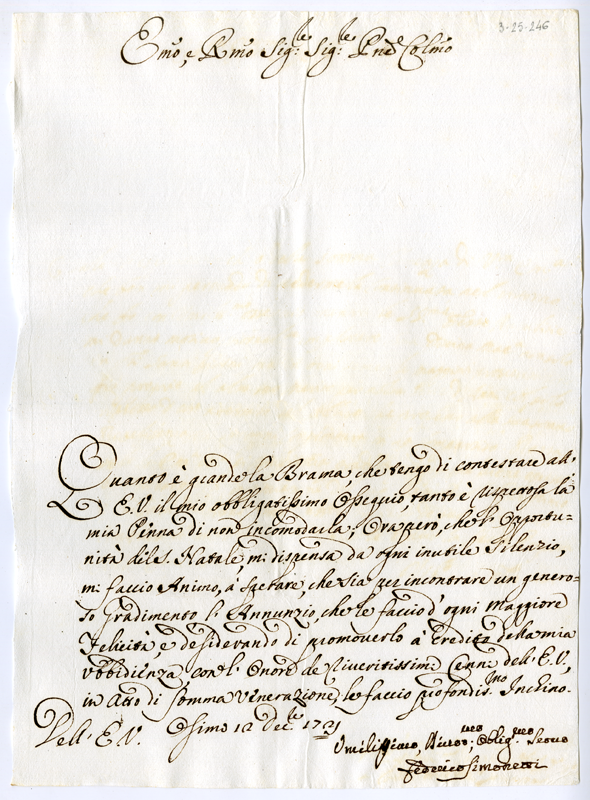 3-25-246
Emo, e Rmo Sig.re Sig.re Pnē Colmo
Quanto è grande la Brama, che tengo di contestare all'
E.V. il mio obbligatissimo Ossequio, tanto è rispettosa la
mia Penna di non incomodarla; Ora però, che l'Opportu-
nità del S. Natale mi dispensa da ogni inutile Silenzio,
mi faccio Animo, à sperare, che sia per incontrare un genero-
so Gradimento l'Annunzio, che le faccio d'ogni Maggiore
Felicità, e desiderando di promoverlo à Eredità della mia
Vbbidienza, con l'Onore de Riveritissimi Cenni dell'E.V.,
in Atto di somma Venerazione, le faccio profondis.mo Inchino.
Dell'E.V. Osimo 12 Dec.re 1721
Vmilissimo, Divot.mo, Oblig.mo Servo
Federico Simonetti